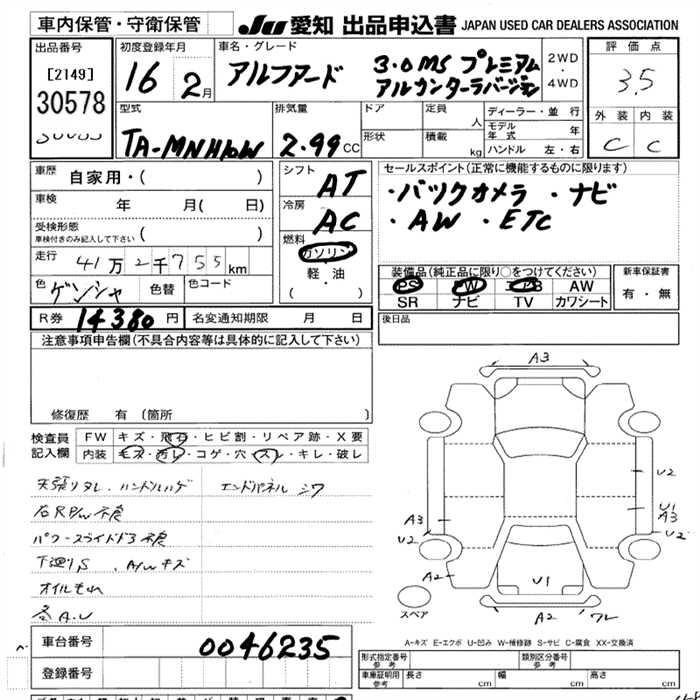 車内保管・守衛保管
JU 愛知 出品申込書 JAPAN USED CAR DEALERS ASSOCIATION
出品番号
[2149]
30578
初度登録年月
16 2月
車名・グレード
アルファード 3.0MS プレミアム
アルカンターラバージョン
2WD
・
4WD
評価点
3.5
外装 内装
C C
型式
TA-MNH10W
排気量
2.99cc
ドア
形状
定員 人
積載 kg
ディーラー・並行
モデル年式 年
ハンドル 左・右
車歴
自家用・( )
車検 年 月( 日)
受検形態
車検付きのみ記入して下さい ( )
走行 41万2千755km
色 ゲンシャ 色替 色コード
R券 14380円 名変通知期限 月 日
シフト AT
冷房 AC
燃料
ガソリン
軽・油
( ・ )
セールスポイント(正常に機能するものに限ります)
・バックカメラ ・ナビ
・AW ・ETC
装備品(純正品に限り○をつけてください)
PS PW エアB AW
SR ナビ TV カワシート
新車保証書
有・無
後日品
注意事項申告欄(不具合内容等は具体的に記入して下さい)
修復歴 有(箇所 )
検査員記入欄
FW キズ・飛石・ヒビ割・リペア跡・X要
内装 キズ・汚レ・コゲ・穴・スレ・キレ・破レ
天張りタレ、ハンドルハゲ エンドパネル シワ
右RP/W不良
パワースライドドア不良
下廻りS、A/Wキズ
オイルモレ
各A.U
A3
A3
U2
A2
U2
U1
A3
U2
U1
A2
ワレ
スペア
A-キズ E-エクボ U-凹み W-補修跡 S-サビ C-腐食 XX-交換済
車台番号 0046235
登録番号
形式指定番号 参考
類別区分番号 参考
車庫証明用 参考 長さ 幅 高さ
cm cm cm